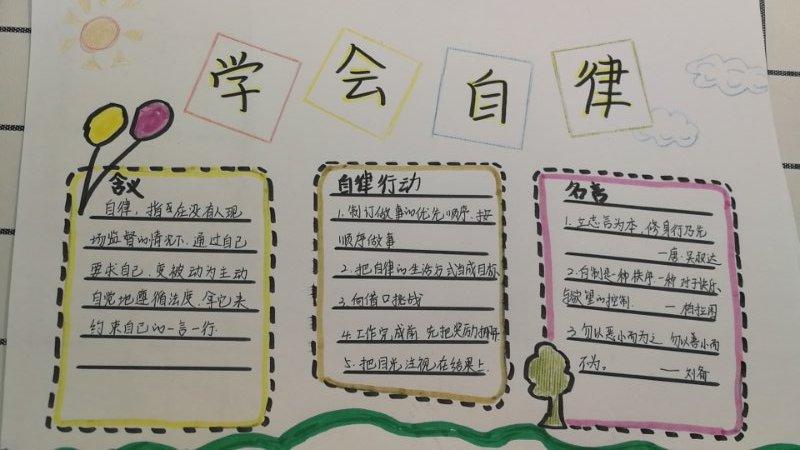 学会自律
含义
自律，指在没有人现
场监督的情况下，通过自己
要求自己，变被动为主动
自觉地遵循法度，拿它来
约束自己的一言一行.
自律行动
1.制订做事的优先顺序.按
顺序做事
2.把自律的生活方式当成目标
3.向借口挑战
4.工作完成前 先把奖励挪开
5.把目光注视在结果上.
名言
1.立志言为本，修身行乃先
—唐·吴叔达
2.自制是一种秩序，一种对于快乐
与欲望的控制. —柏拉图
3.勿以恶小而为之 勿以善小而
不为。 —刘备